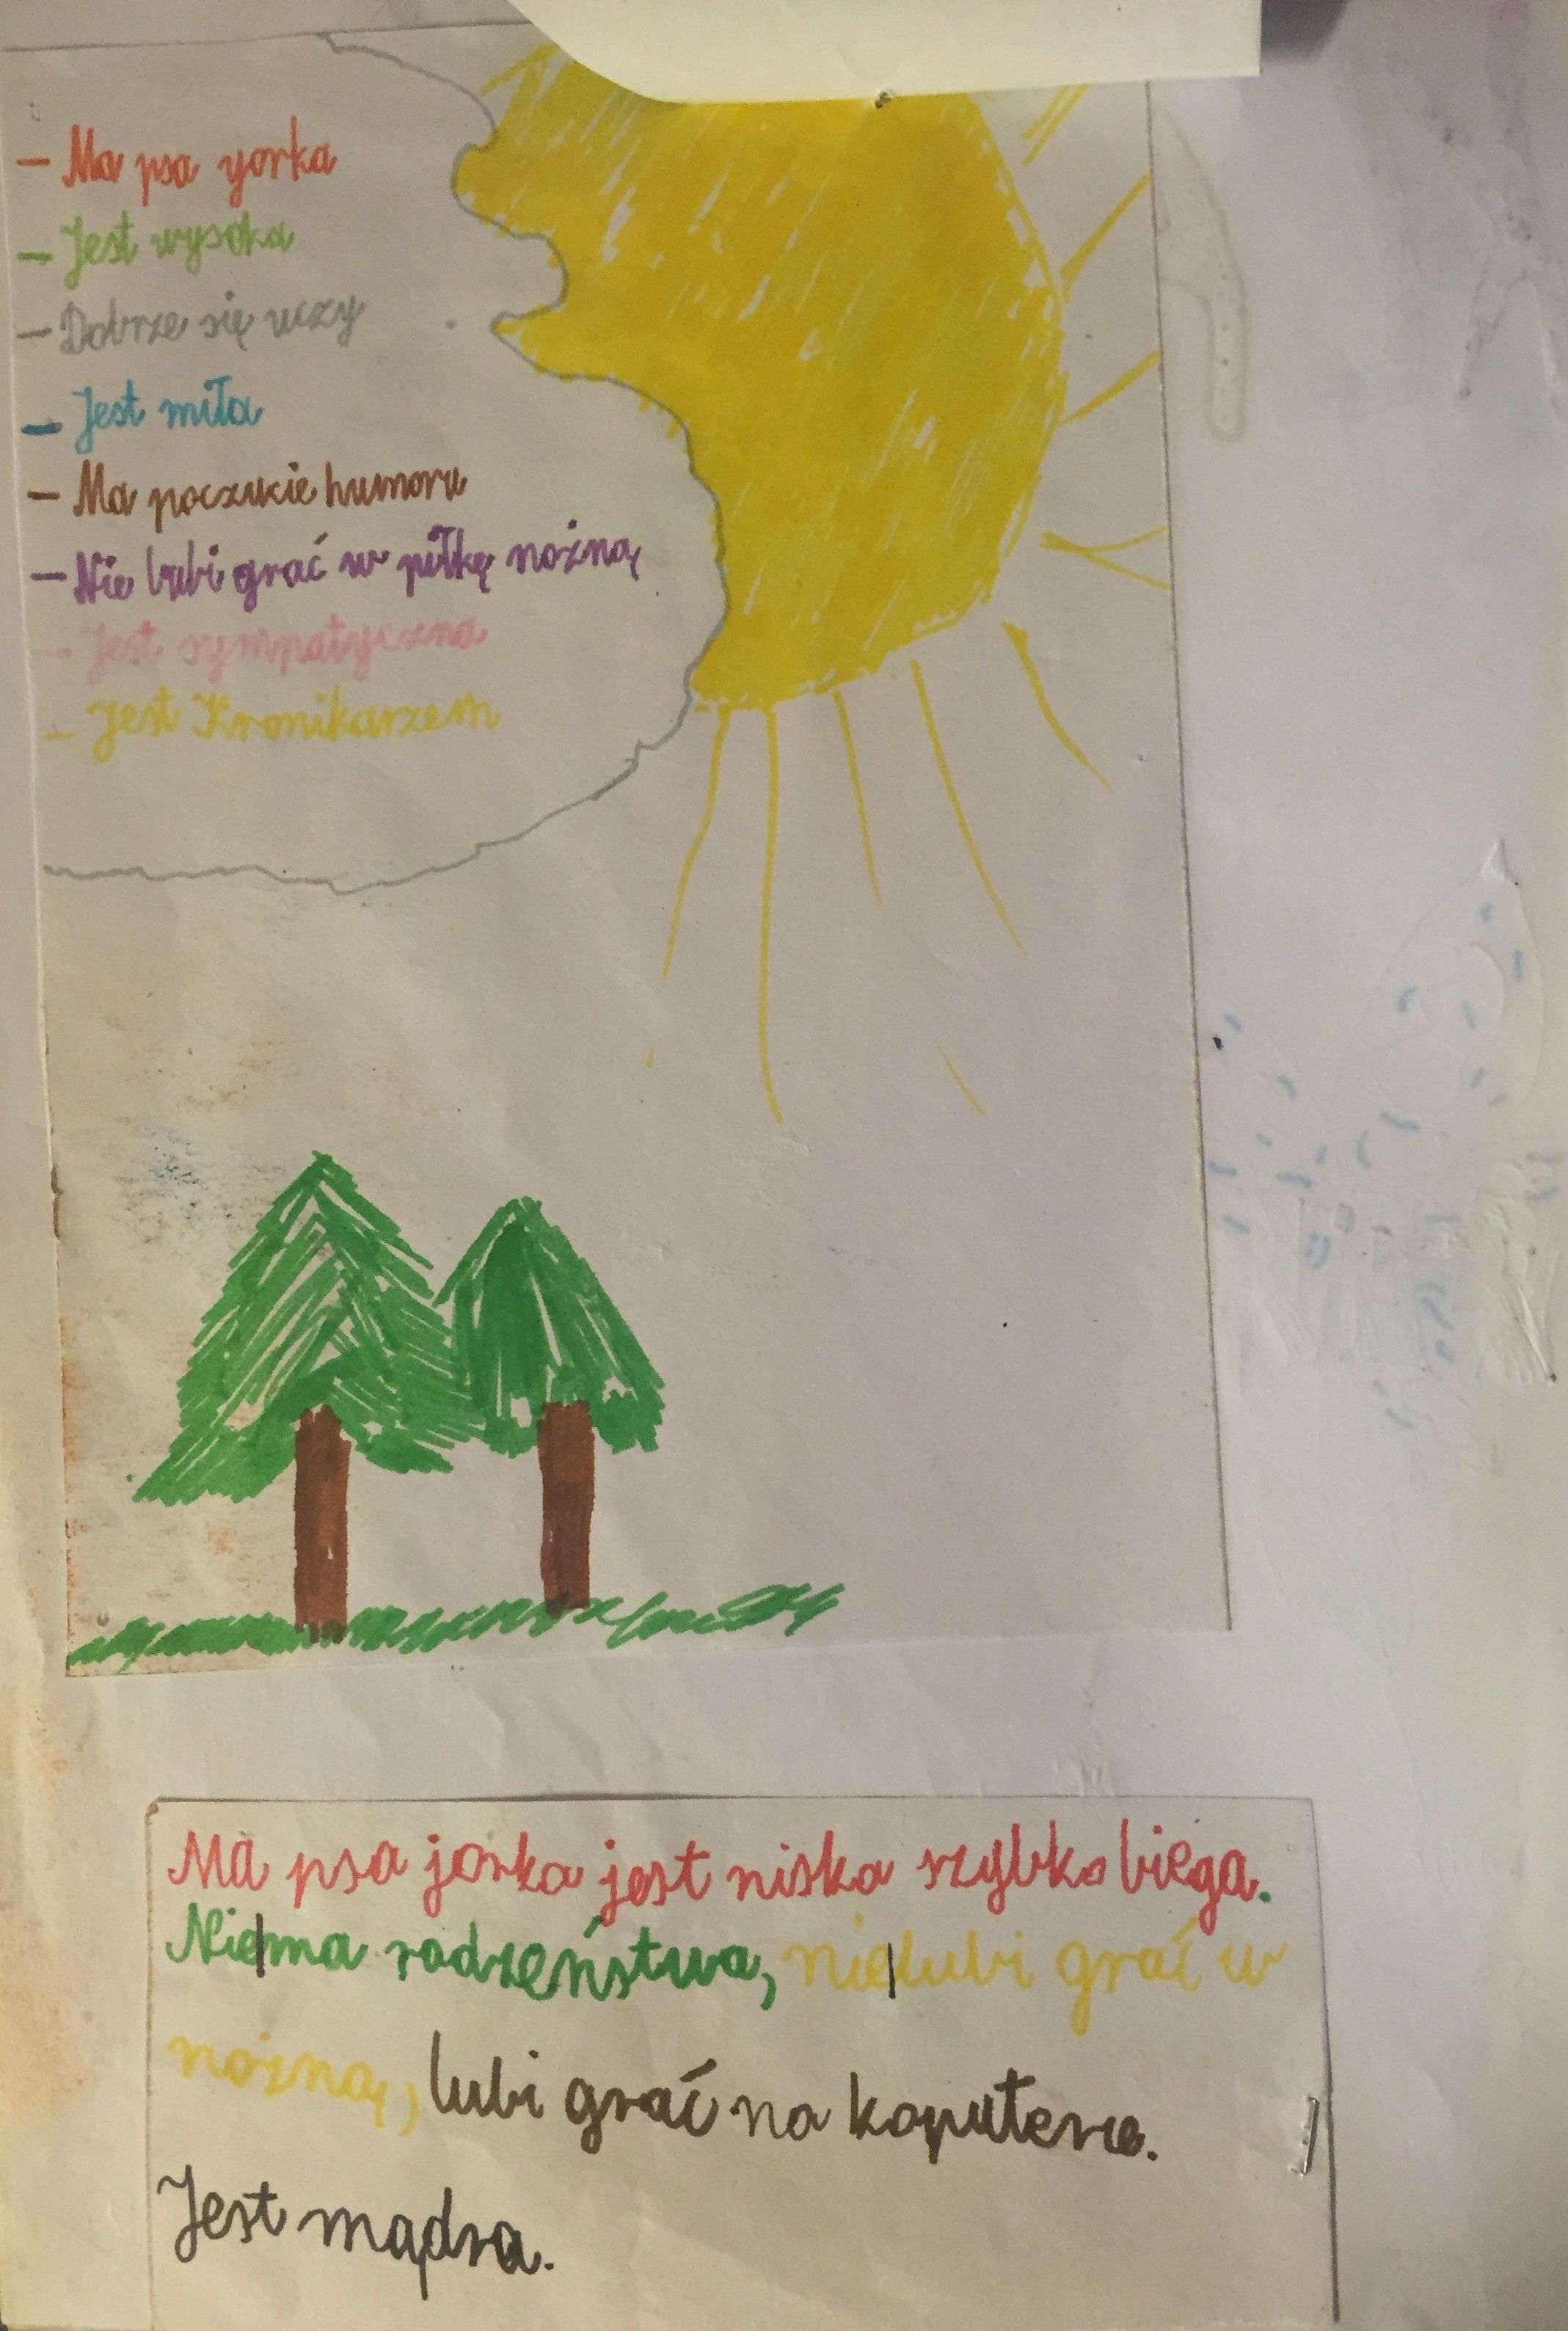 - Ma psa yorka
- Jest wysoka
- Dobrze się uczy
- Jest miła
- Ma poczucie humoru
- Nie lubi grać w piłkę nożną
- Jest sympatyczna
- Jest Kronikarzem
Ma psa jorka jest niska szybko biega.
Nie|ma rodzeństwa, nie|lubi grać w
nożną, lubi grać na koputerze.
Jest mądra.